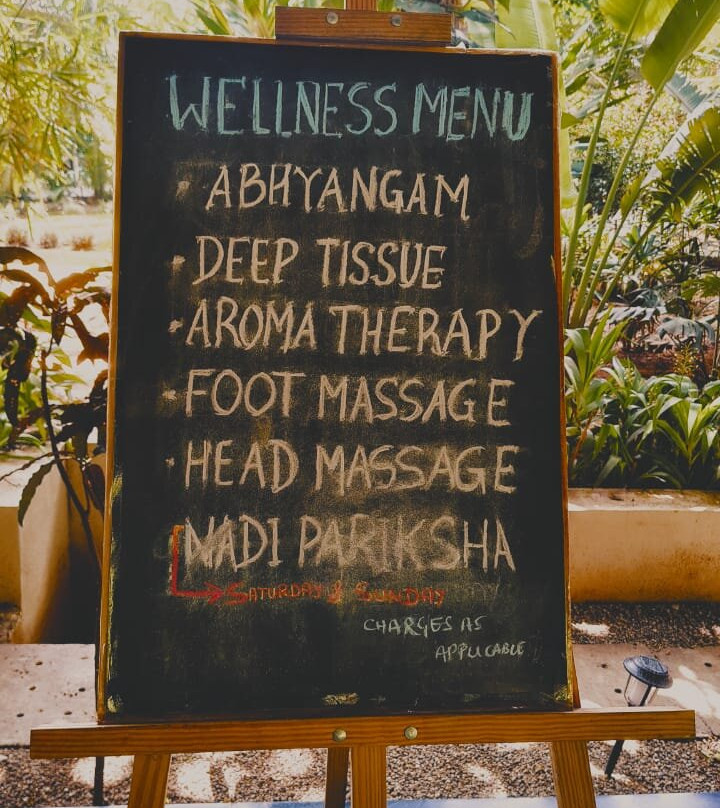 WELLNESS MENU
• ABHYANGAM
• DEEP TISSUE
• AROMA THERAPY
• FOOT MASSAGE
• HEAD MASSAGE
NADI PARIKSHA
SATURDAY & SUNDAY
CHARGES AS
APPLICABLE